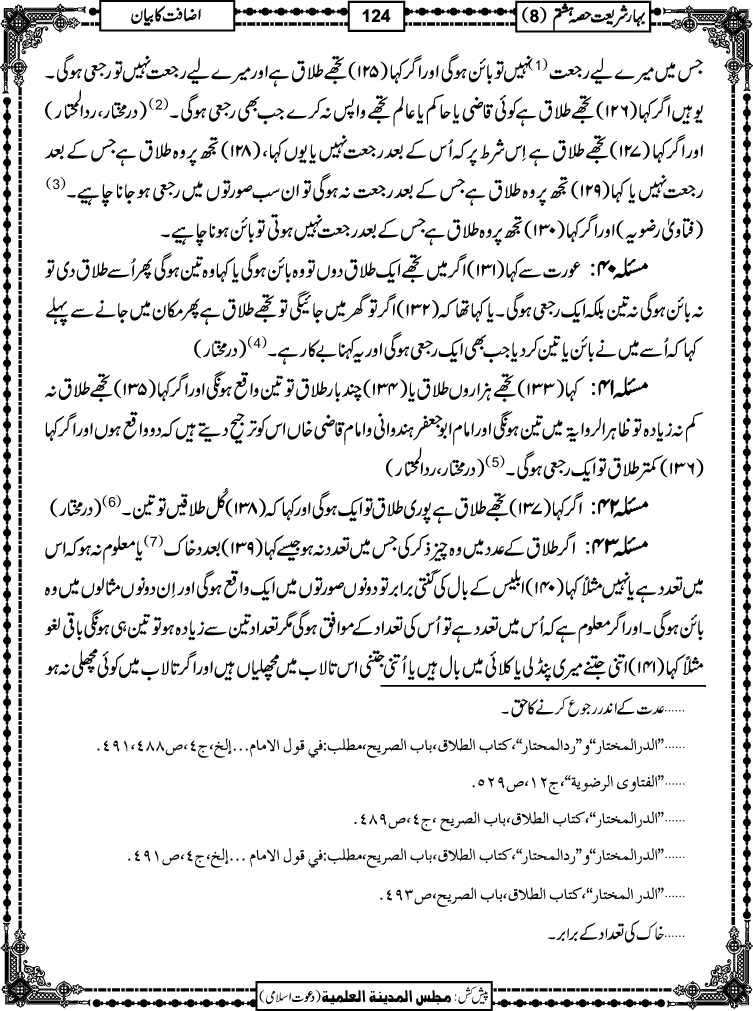 بہار شریعت حصہ ہشتم (8)
124
اضافت کا بیان
جس میں میرے لیے رجعت (1) نہیں تو بائن ہوگی اور اگر کہا (۱۲۵) تجھے طلاق ہے اور میرے لیے رجعت نہیں تو رجعی ہوگی۔
یوہیں اگر کہا (۱۲۶) تجھے طلاق ہے کوئی قاضی یا حاکم یا عالم تجھے واپس نہ کرے جب بھی رجعی ہوگی۔ (2) (درمختار، ردالمحتار)
اور اگر کہا (۱۲۷) تجھے طلاق ہے اِس شرط پر کہ اُس کے بعد رجعت نہیں یا یوں کہا، (۱۲۸) تجھ پر وہ طلاق ہے جس کے بعد
رجعت نہیں یا کہا (۱۲۹) تجھ پر وہ طلاق ہے جس کے بعد رجعت نہ ہوگی تو ان سب صورتوں میں رجعی ہو جانا چاہیے۔ (3)
(فتاویٰ رضویہ) اور اگر کہا (۱۳۰) تجھ پر وہ طلاق ہے جس کے بعد رجعت نہیں ہوتی تو بائن ہونا چاہیے۔
مسئلہ ۴۰: عورت سے کہا (۱۳۱) اگر میں تجھے ایک طلاق دوں تو وہ بائن ہوگی یا کہا وہ تین ہوگی پھر اُسے طلاق دی تو
نہ بائن ہوگی نہ تین بلکہ ایک رجعی ہوگی۔ یا کہا تھا کہ (۱۳۲) اگر تو گھر میں جائیگی تو تجھے طلاق ہے پھر مکان میں جانے سے پہلے
کہا کہ اُسے میں نے بائن یا تین کردیا جب بھی ایک رجعی ہوگی اور یہ کہنا بے کار ہے۔ (4) (درمختار)
مسئلہ ۴۱: کہا (۱۳۳) تجھے ہزاروں طلاق یا (۱۳۴) چند بار طلاق تو تین واقع ہونگی اور اگر کہا (۱۳۵) تجھے طلاق نہ
کم نہ زیادہ تو ظاہر الروایۃ میں تین ہونگی اور امام ابوجعفر ہندوانی و امام قاضی خاں اس کو ترجیح دیتے ہیں کہ دو واقع ہوں اور اگر کہا
(۱۳۶) کمتر طلاق تو ایک رجعی ہوگی۔ (5) (درمختار، ردالمحتار)
مسئلہ ۴۲: اگر کہا (۱۳۷) تجھے طلاق ہے پوری طلاق تو ایک ہوگی اور کہا کہ (۱۳۸) کُل طلاقیں تو تین۔ (6) (درمختار)
مسئلہ ۴۳: اگر طلاق کے عدد میں وہ چیز ذکر کی جس میں تعدد نہ ہو جیسے کہا (۱۳۹) بعدد خاک (7) یا معلوم نہ ہو کہ اس
میں تعدد ہے یا نہیں مثلاً کہا (۱۴۰) ابلیس کے بال کی گنتی برابر تو دونوں صورتوں میں ایک واقع ہوگی اور اِن دونوں مثالوں میں وہ
بائن ہوگی۔ اور اگر معلوم ہے کہ اُس میں تعدد ہے تو اُس کی تعداد کے موافق ہوگی مگر تعداد تین سے زیادہ ہو تو تین ہی ہونگی باقی لغو
مثلاً کہا (۱۴۱) اتنی جتنے میری پنڈلی یا کلائی میں بال ہیں یا اُتنی جتنی اس تالاب میں مچھلیاں ہیں اور اگر تالاب میں کوئی مچھلی نہ ہو
......عدت کے اندر رجوع کرنے کا حق۔
......”الدرالمختار“ و”ردالمحتار“، کتاب الطلاق، باب الصریح، مطلب: في قول الامام...إلخ، ج٤، ص٤٨٨، ٤٩١.
......”الفتاوی الرضویة“، ج١٢، ص٥٢٩.
......”الدرالمختار“، کتاب الطلاق، باب الصریح، ج٤، ص٤٨٩.
......”الدرالمختار“ و”ردالمحتار“، کتاب الطلاق، باب الصریح، مطلب: في قول الامام ...إلخ، ج٤، ص٤٩١.
......”الدر المختار“، کتاب الطلاق، باب الصریح، ص٤٩٣.
......خاک کی تعداد کے برابر۔
پیش کش: مجلس المدینة العلمیة (دعوت اسلامی)